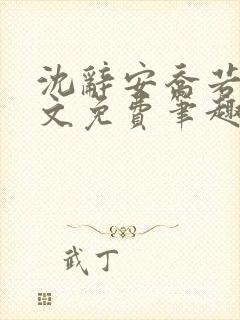 沈辞安乔若
文免费笔趣
武丁